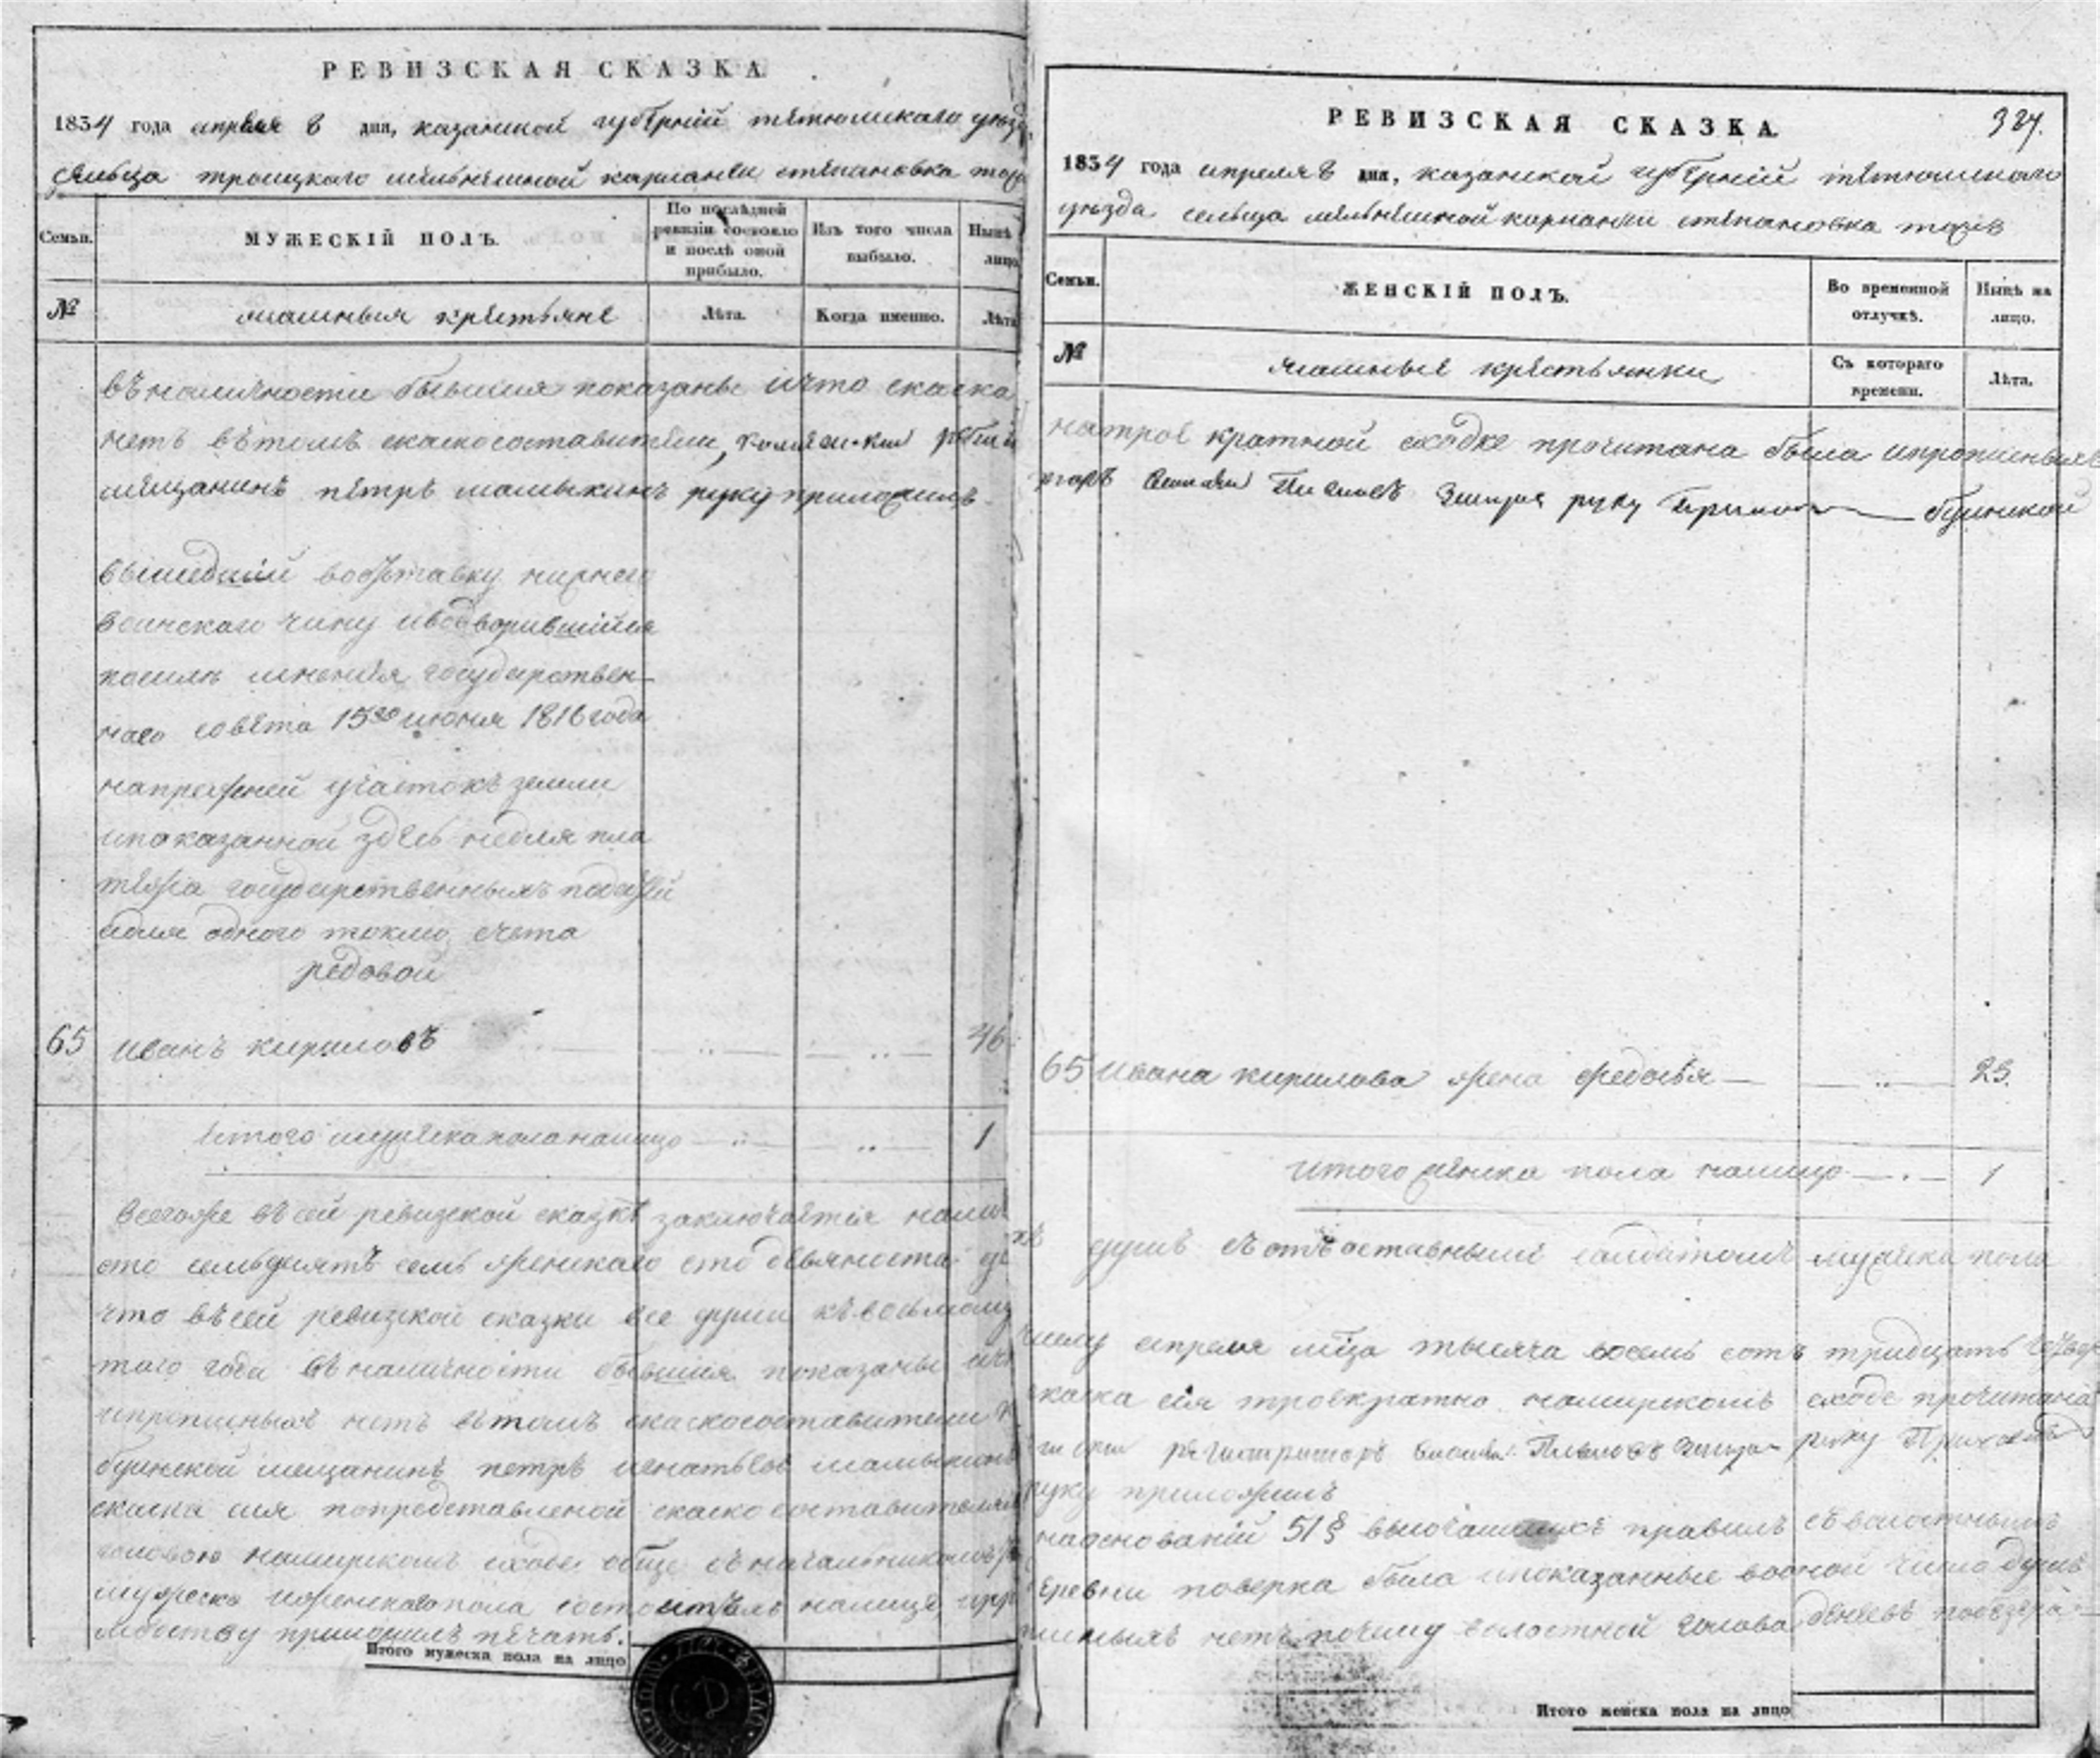 РЕВИЗСКАЯ СКАЗКА
1834 года апреля 8 дня, казанской губерний тетюшскаго уезда
сельца троицкаго мельнешной карланги степановка тожъ
Семьи.
МУЖЕСКІЙ ПОЛЪ.
По послѣдней ревизіи состояло и послѣ оной прибыло.
Изъ того числа выбыло.
Нынѣ лицо
№
ясашныя крестьяне
Лѣта.
Когда именно.
Лѣта
въ наличности бывшия показаны ичто скаска
нетъ вътомъ скаскосоставители,
мещанинъ петръ малыкинъ руку приложилъ
вышедшій воотставку нижнего
воинскаго чину иводворившійся
посиле мнения государствен-
наго совета 15го июня 1816 года
напрежней участокъ земли
ипоказанной здесь недля пла
тежа государственныхъ податей
адля одного токмо счета
редовой
65 иванъ кириловъ 46
Итого мужеска пола налицо 1
Всегоже въсей ревизской сказке заключается нали
сто семьдесятъ семь женскаго сто девяносто
что въсей ревизской сказки все души къ восьмому
того года въналичности бывшия показаны ичт
ипрописныхъ нетъ втомъ скаскосоставители
буинской мещанинъ петръ игнатьевъ малыкинъ
скаска сия попредставленой скаскосоставителям
головою намирскомъ сходе обще съначальникомъ
мужеска иженскаго пола состоитъ налице
приложилъ печать.
Итого мужеска пола на лицо
РЕВИЗСКАЯ СКАЗКА.
327.
1834 года апреля 8 дня, казанской губерний тетюшскаго
уезда сельца мельнешной карланги степановка тожъ
Семьи.
ЖЕНСКІЙ ПОЛЪ.
Во временной отлучкѣ.
Нынѣ на лицо.
№
ясашные крестьянки
Съ котораго времени.
Лѣта.
натрое кратной сходке прочитана была ипрописныхъ
руку буинской
65 Ивана кирилова жена федосья 23.
итого женска пола налицо 1
душъ съ отъоставнымъ салдатомъ мужска пола
числу апреля мца тысяча восемь сотъ тридцать четвер
скаска сия троекратно намирскомъ сходе прочитана
руку
руку приложилъ
наоснованій 51§ высочайшихъ правилъ съволостнымъ
деревни поверка была ипоказанные воной число душъ
нетъ почему волостной голова
Итого женска пола на лицо